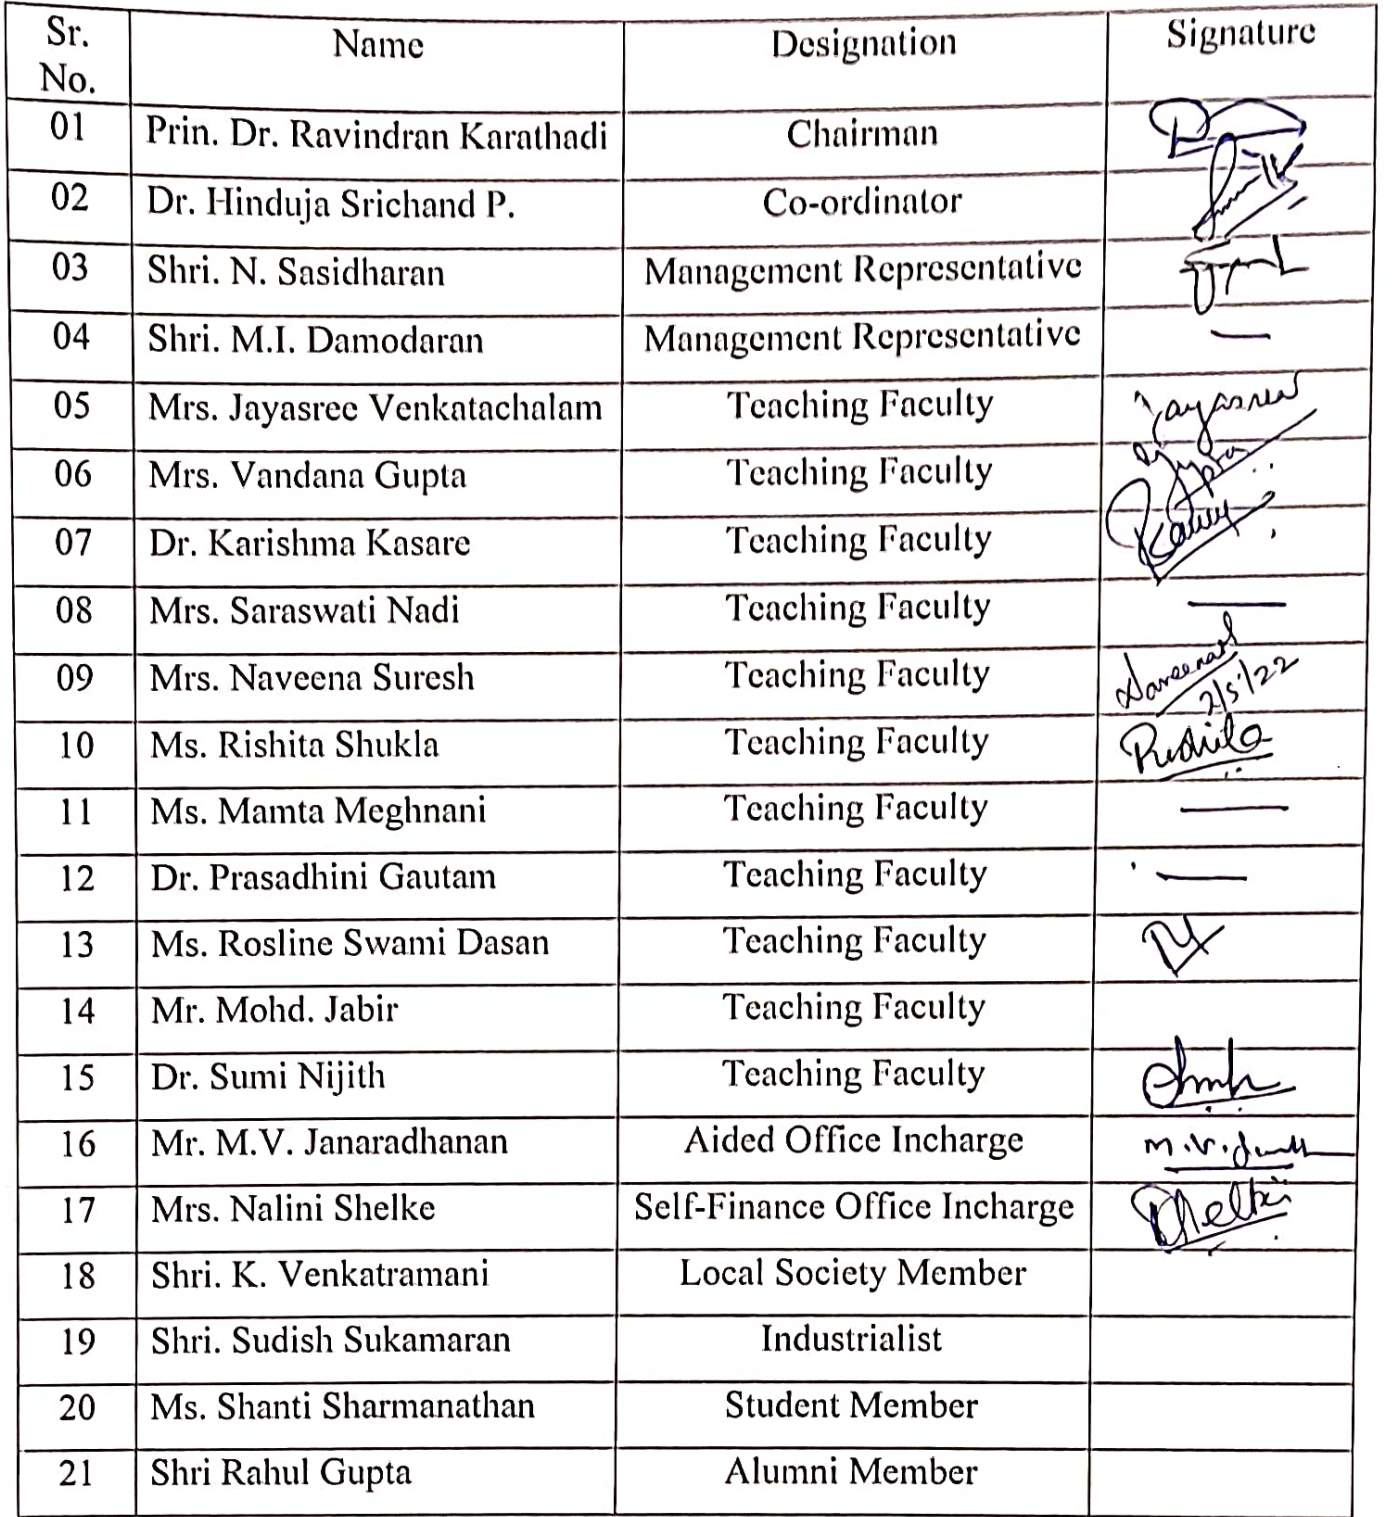 Sr. No. Name Designation Signature
01 Prin. Dr. Ravindran Karathadi Chairman
02 Dr. Hinduja Srichand P. Co-ordinator
03 Shri. N. Sasidharan Management Representative
04 Shri. M.I. Damodaran Management Representative —
05 Mrs. Jayasree Venkatachalam Teaching Faculty Jayasree
06 Mrs. Vandana Gupta Teaching Faculty
07 Dr. Karishma Kasare Teaching Faculty
08 Mrs. Saraswati Nadi Teaching Faculty —
09 Mrs. Naveena Suresh Teaching Faculty 2/5/22
10 Ms. Rishita Shukla Teaching Faculty
11 Ms. Mamta Meghnani Teaching Faculty —
12 Dr. Prasadhini Gautam Teaching Faculty —
13 Ms. Rosline Swami Dasan Teaching Faculty
14 Mr. Mohd. Jabir Teaching Faculty
15 Dr. Sumi Nijith Teaching Faculty
16 Mr. M.V. Janaradhanan Aided Office Incharge M.V.
17 Mrs. Nalini Shelke Self-Finance Office Incharge
18 Shri. K. Venkatramani Local Society Member
19 Shri. Sudish Sukamaran Industrialist
20 Ms. Shanti Sharmanathan Student Member
21 Shri Rahul Gupta Alumni Member